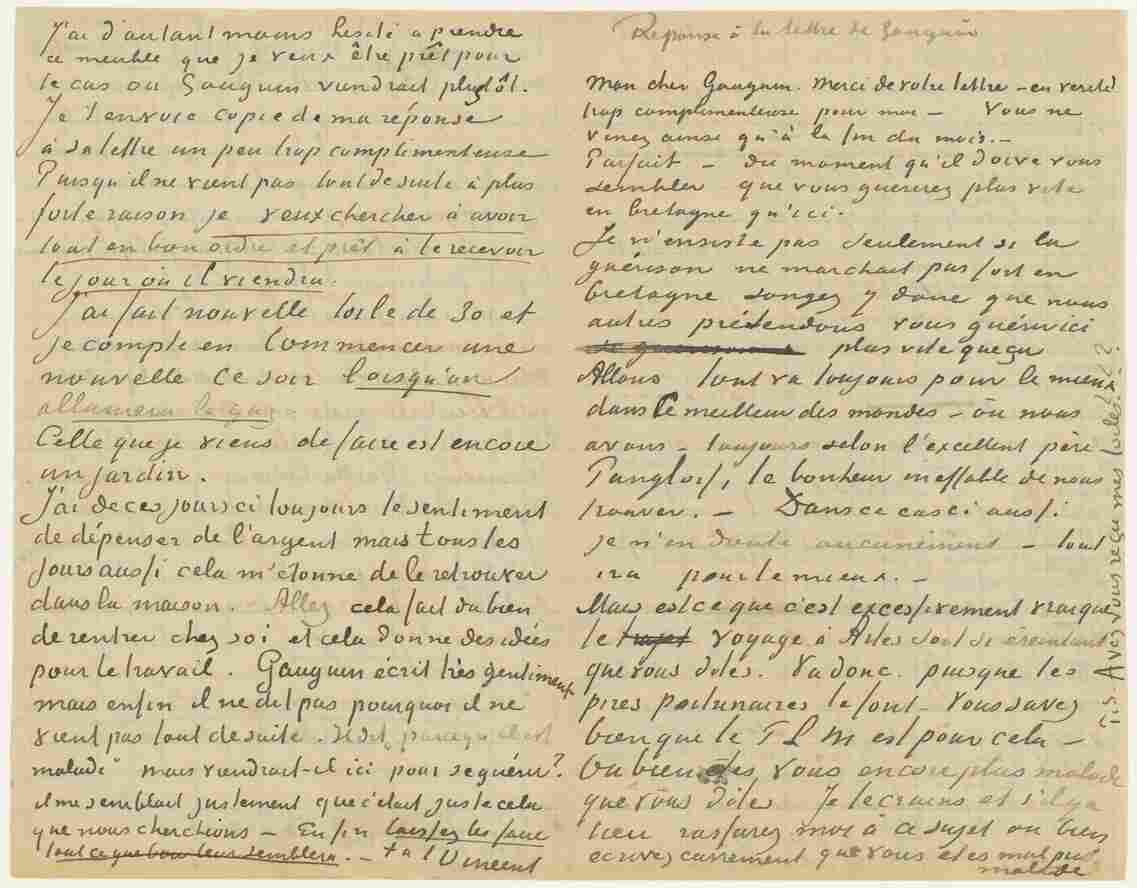 J'ai d'autant moins hesité a prendre
ce meuble que je veux être prêt pour
le cas ou Gauguin viendrait plus tôt.
Je t'envoie copie de ma réponse
à sa lettre un peu trop complimenteuse
Puisqu'il ne vient pas tout de suite à plus
forte raison je veux chercher à avoir
tout en bon ordre et prêt à le recevoir
le jour où il viendra.
J'ai fait nouvelle toile de 30 et
je compte en commencer une
nouvelle ce soir lorsqu'on
allumera le gaz
Celle que je viens de faire est encore
un jardin.
J'ai de ces jours ci toujours le sentiment
de dépenser de l'argent mais tous les
jours aussi cela m'étonne de le retrouver
dans la maison. Allez cela fait du bien
de rentrer chez soi et cela donne des idées
pour le travail. Gauguin écrit très gentiment
mais enfin il ne dit pas pourquoi il ne
vient pas tout de suite. Il dit, parcequ'il est
malade" mais viendrait-il ici pour se guérir?
il me semblait justement que c'était juste cela
que nous cherchions – Enfin laissez les faire
tout ce que bon leur semblera. – t à t Vincent
Reponse à la lettre de Gauguin
Mon cher Gauguin. Merci de votre lettre – en verité
trop complimenteuse pour moi – Vous ne
venez ainsi qu'à la fin du mois. –
Parfait – du moment qu'il doive vous
sembler que vous guererez plus vite
en bretagne qu'ici.
Je n'ensiste pas seulement si la
guérison ne marchait pas fort en
bretagne songez y donc que nous
autres prétendons vous guérir ici
plus vite que ça
Allons tout va toujours pour le mieux
dans le meilleur des mondes – ou nous
avons – toujours selon l'excellent père
Pangloss, le bonheur ineffable de nous
trouver. – Dans ce cas ci aussi
je n'en doute aucunement – tout
ira pour le mieux. –
Mais est ce que c'est excessivement vrai que
le trajet voyage à Arles soit si éreintant
que vous dites. Va donc. puisque les
pires poitrinaires le font – Vous savez
bien que le P L M est pour cela –
Ou bien etes vous encore plus malade
que vous dites Je le crains et s'il y a
lieu rassurez moi à ce sujet ou bien
ecrivez carrement que vous etes mal pis
malade
Avez vous reçu mes toiles???